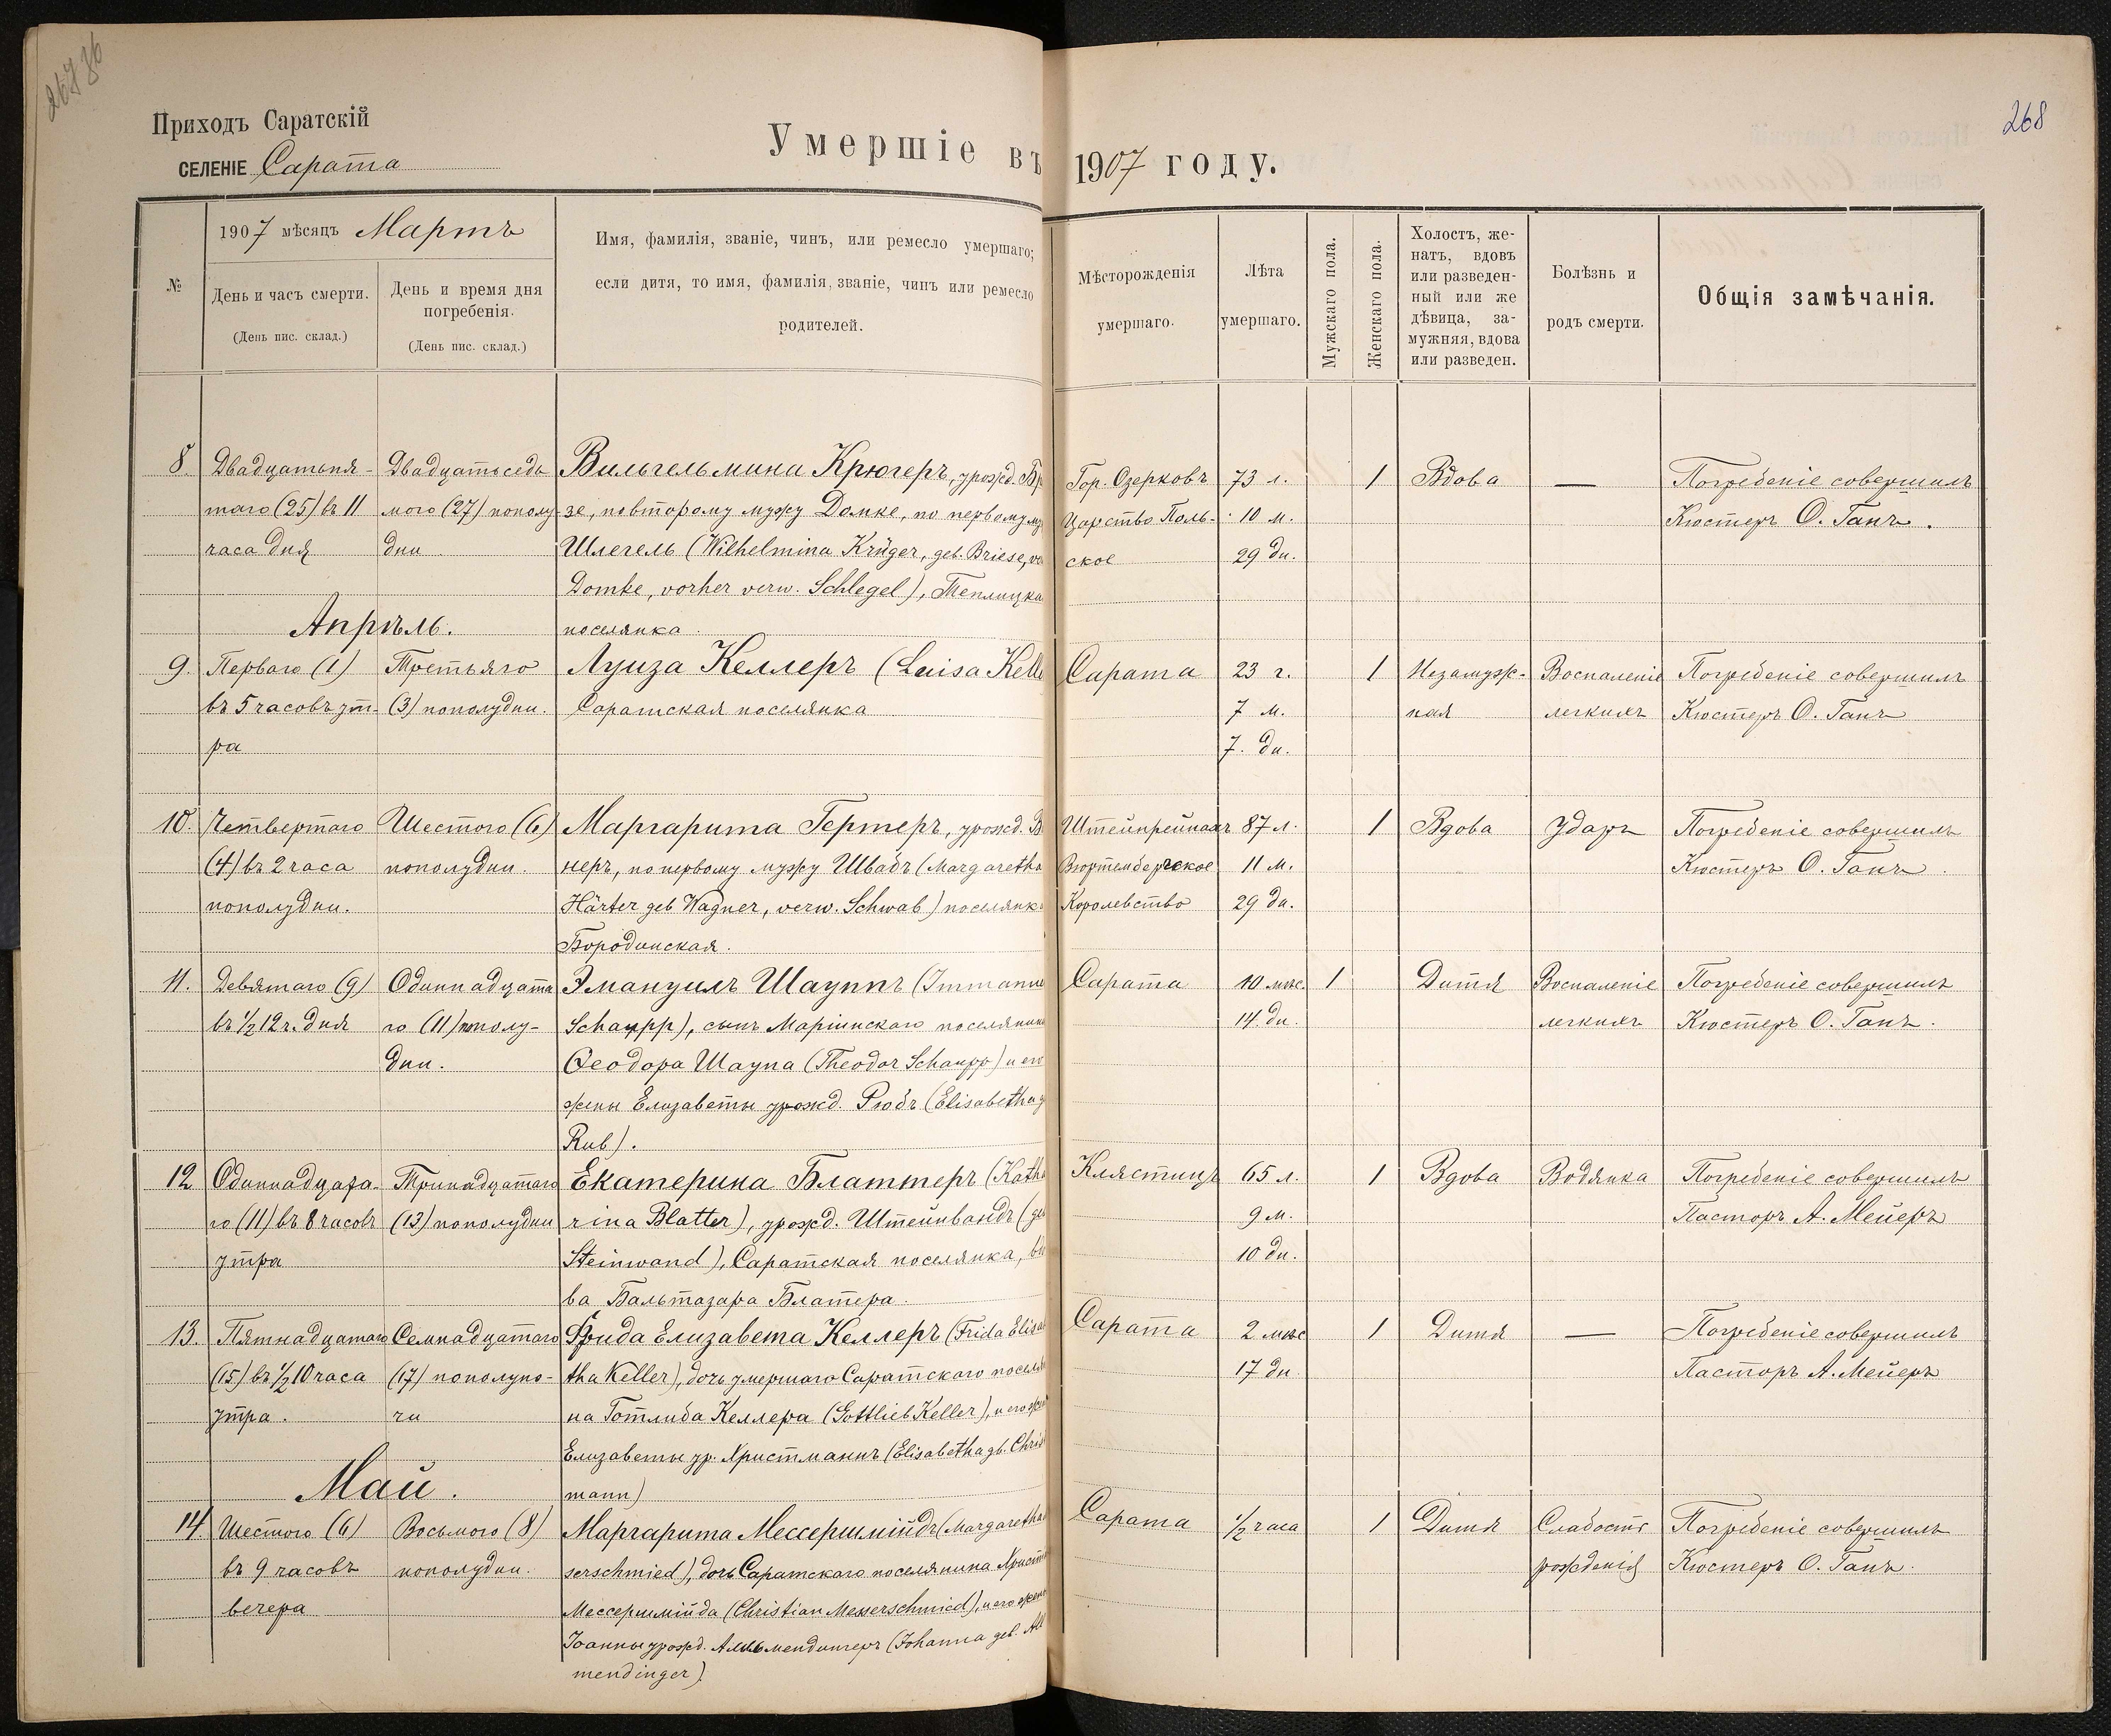 268
Приходъ Саратскій
СЕЛЕНІЕ Сарата
Умершіе въ 1907 году.
№
1907 мѣсяцъ Мартъ
День и часъ смерти.
(День пис. склад.)
День и время дня
погребенія.
(День пис. склад.)
Имя, фамилія, званіе, чинъ, или ремесло умершаго;
если дитя, то имя, фамилія, званіе, чинъ или ремесло
родителей.
Мѣсторожденія
умершаго.
Лѣта
умершаго.
Мужскаго пола.
Женскаго пола.
Холостъ, же-
натъ, вдовъ
или разведен-
ный или же
дѣвица, за-
мужняя, вдова
или разведен.
Болѣзнь и
родъ смерти.
Общія замѣчанія.
8. Двадцатьпя- Двадцатьседь Вильгельмина Крюгеръ, урожд. Бр Гор. Озерковъ 73 л. 1 Вдова — Погребеніе совершилъ
таго (25) въ 11 мого (27) пополу- зе, повторому мужу Домке, по первому му Царство Поль- 10 м. Кюстеръ О. Ганъ.
часа дня дни Шлегель (Wilhelmina Krüger, geb. Briese, ve ское 29 дн.
Domke, vorher verw. Schlegel), Теплицка
Апрѣль. поселянка.
9. Перваго (1) Третьяго Луиза Келлеръ (Luisa Kelle Сарата 23 г. 1 Незамуж- Воспаленіе Погребеніе совершилъ
въ 5 часовъ ут- (3) пополудни. Саратская поселянка 7 м. ная легкихъ Кюстеръ О. Ганъ
ра 7. дн.
10. Четвертаго Шестого (6) Маргарита Гертеръ, урожд. В Штейнрейнахъ 87 л. 1 Вдова Ударъ Погребеніе совершилъ
(4) въ 2 часа пополудни. неръ, по первому мужу Швабъ (Margaretha Вюртембергское 11 м. Кюстеръ О. Ганъ.
пополудни. Härter geb Wagner, verw. Schwab) поселянк Королевство 29 дн.
Бородинская.
11. Девятаго (9) Одиннадцата Эмануилъ Шауппъ (Immanue Сарата 10 мѣс. 1 Дитя Воспаленіе Погребеніе совершилъ
въ ½ 12 ч. дня го (11) пополу- Schaupp), сынъ Маріинскаго поселянина 14. дн. легкихъ Кюстеръ О. Ганъ.
дни. Ѳеодора Шаупа (Theodor Schaupp) и его
жены Елизаветы урожд. Рюбъ (Elisabetha g
Rub).
12. Одиннадцата- Тринадцатаго Екатерина Блаттеръ (Katha Клястицъ 65 л. 1 Вдова Водянка Погребеніе совершилъ
го (11) въ 8 часовъ (13) пополудни rina Blatter), урожд. Штейнвандъ (ge 9 м. Пасторъ А. Мейеръ
утра Steinwand), Саратская поселянка, вдо 10 дн.
ва Бальтазара Блатера.
13. Пятнадцатаго Семнадцатаго Фрида Елизавета Келлеръ (Frida Elisa Сарата 2 мѣс 1 Дитя — Погребеніе совершилъ
(15) въ ½ 10 часа (17) пополуно- tha Keller), дочь умершаго Саратскаго поселя 17 дн. Пасторъ А. Мейеръ
утра. чи на Готлиба Келлера (Gottlieb Keller), и его жен
Елизаветы ур. Христманнъ (Elisabetha gb. Christ
Май. mann)
14. Шестого (6) Восьмого (8) Маргарита Мессершмійдъ (Margaretha Сарата ½ часа 1 Дитя Слабость Погребеніе совершилъ
въ 9 часовъ пополудни. serschmied), дочь Саратскаго поселянина Христі рожденія Кюстеръ О. Ганъ.
вечера Мессершмійда (Christian Messerschmied), и его жены
Іоанны урожд. Алльмендингеръ (Johanna geb. All
mendinger).